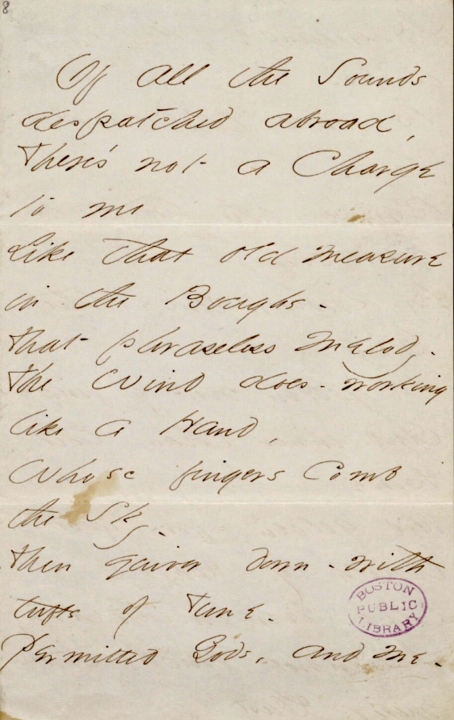 8
Of all the Sounds
despatched abroad,
There's not a Charge
to me
Like that old measure
in the Boughs -
That phraseless Melody -
The Wind does - working
like a Hand,
Whose fingers Comb
the Sky -
Then quiver down - with
tufts of Tune -
Permitted Gods, and me -
BOSTON
PUBLIC
LIBRARY